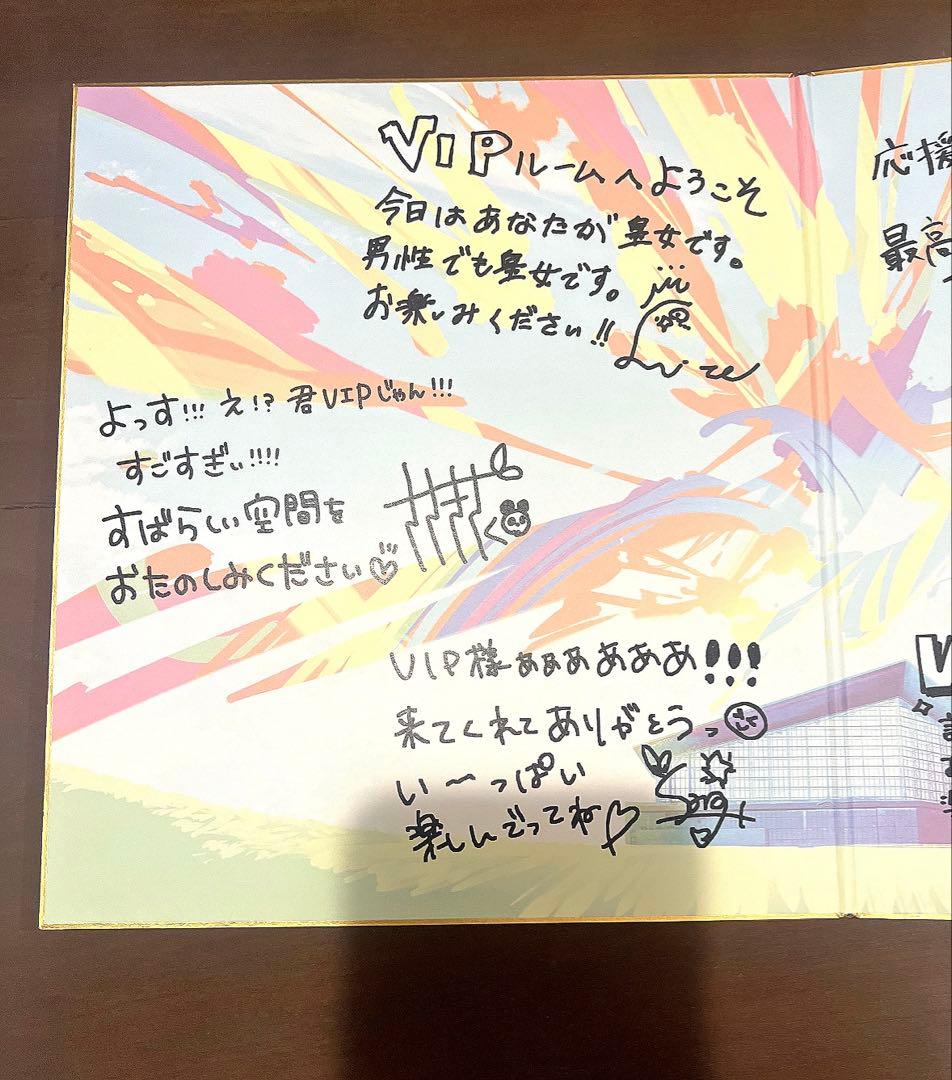 VIPルームへようこそ
今日はあなたが皇女です。
男性でも皇女です。
お楽しみください!!
よっす!!! え!? 君VIPじゃん!!!
すごすぎぃ!!!!
すばらしい空間を
おたのしみください♡
VIP様ぁぁぁあああ!!!
来てくれてありがとうっ
い〜っぱい
楽しんでってね♡
応援
最高